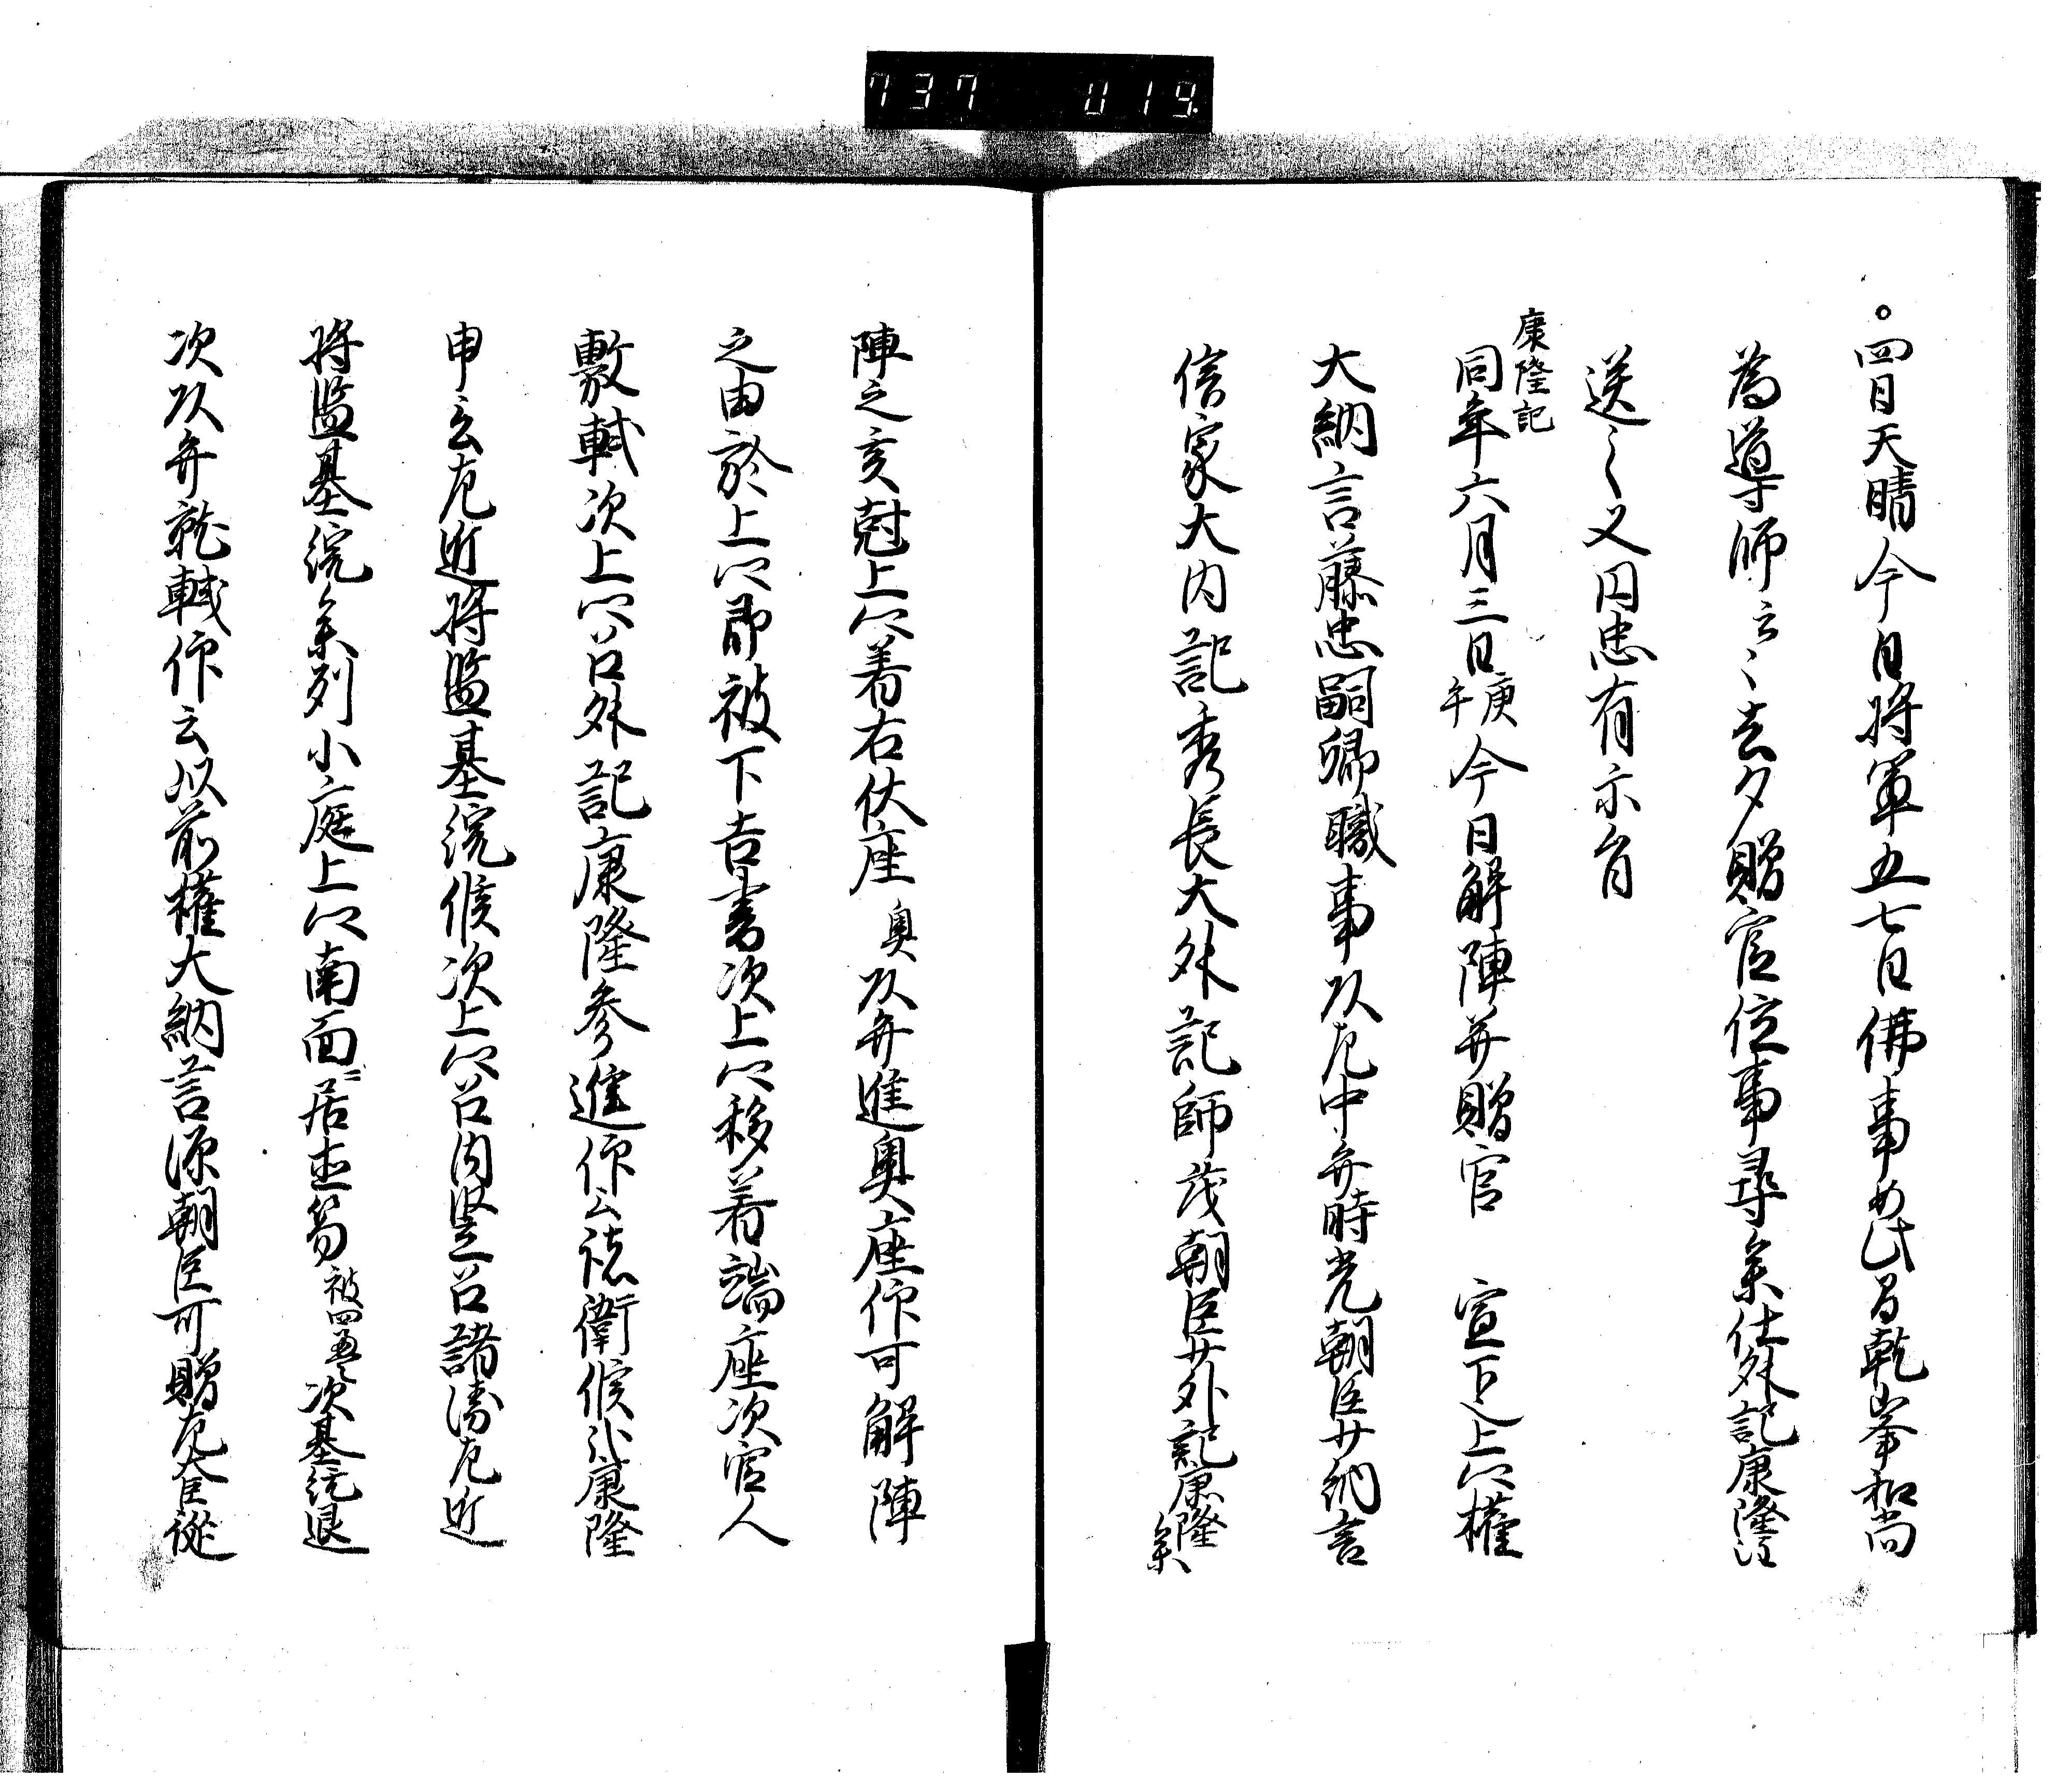 737 019
。四日天晴今日将軍五七日佛事如此昌乾峯和尚
為導師云々去夕贈官位事尋参仕外記康隆注
送之又因忠有示旨
康隆記
同年六月三日庚午今日解陣并贈官 宣下上卿権
大納言藤忠嗣卿職事頭左中弁時光朝臣少納言
信家大内記秀長大外記師茂朝臣少外記康隆参
陣之亥尅上卿着右仗座奥頭弁進奥座仰可解陣
之由於上卿即被下吉書次上卿移着端座次官人
敷軾次上卿召外記康隆参進仰云諸衛候哉康隆
申云左近将監基綂候次上卿召内竪召諸衛左近
将監基綂参列小庭上卿南面ニ居直笏被四五々次基綂退
次頭弁就軾仰云以前権大納言源朝臣可贈左大臣従